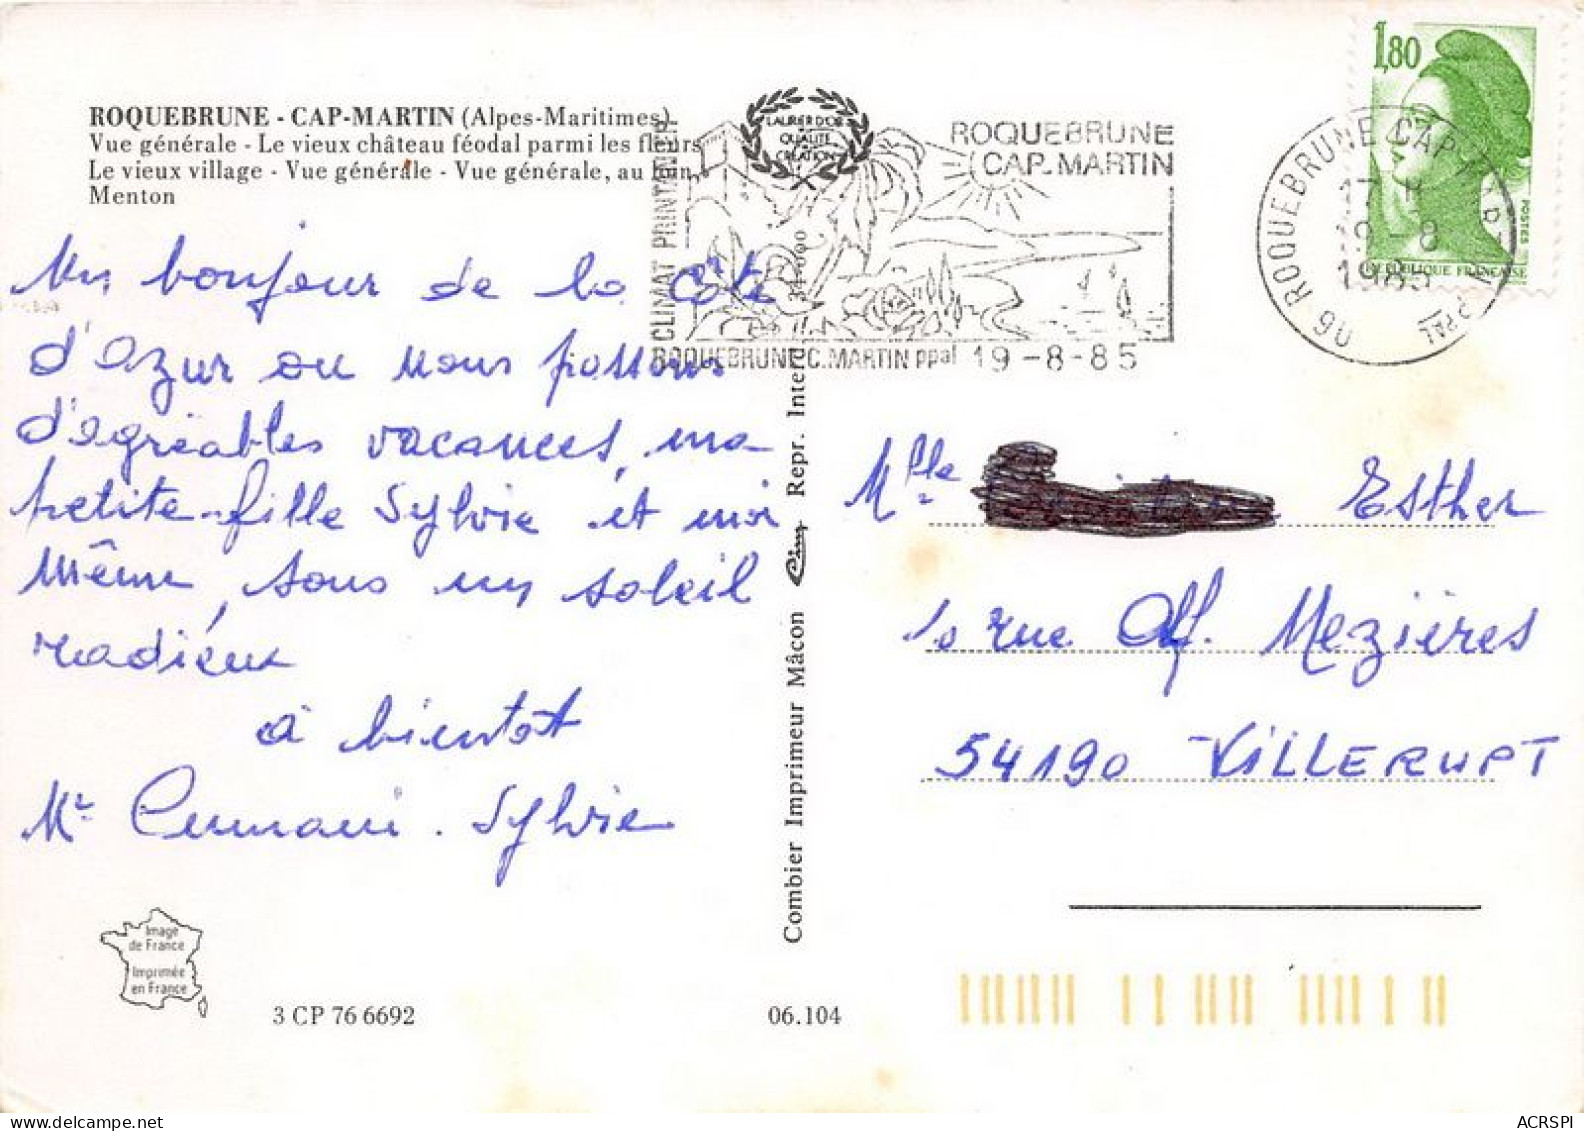 ROQUEBRUNE - CAP-MARTIN (Alpes-Maritimes)
Vue générale - Le vieux château féodal parmi les fleurs
Le vieux village - Vue générale - Vue générale, au loin,
Menton
Un bonjour de la Côte
d'Azur ou nous passons
d'agréables vacances, ma
petite-fille Sylvie et moi
même, sous un soleil
radieux
à bientôt
Sylvie
Image
de France
Imprimée
en France
3 CP 76 6692
06.104
Combier Imprimeur Mâcon Cim Repr. Interd.
CLIMAT PRINTANIER
LAURIER D'OR
QUALITE
CREATION
ROQUEBRUNE
CAP-MARTIN
ROQUEBRUNE C.MARTIN ppal 19-8-85
1,80
POSTES
REPUBLIQUE FRANÇAISE
06 ROQUEBRUNE CAP MART PPAL
17 H
19-8
1985
Mlle Esther
10 rue Alf. Mezières
54190 VILLERUPT
ACRSPI